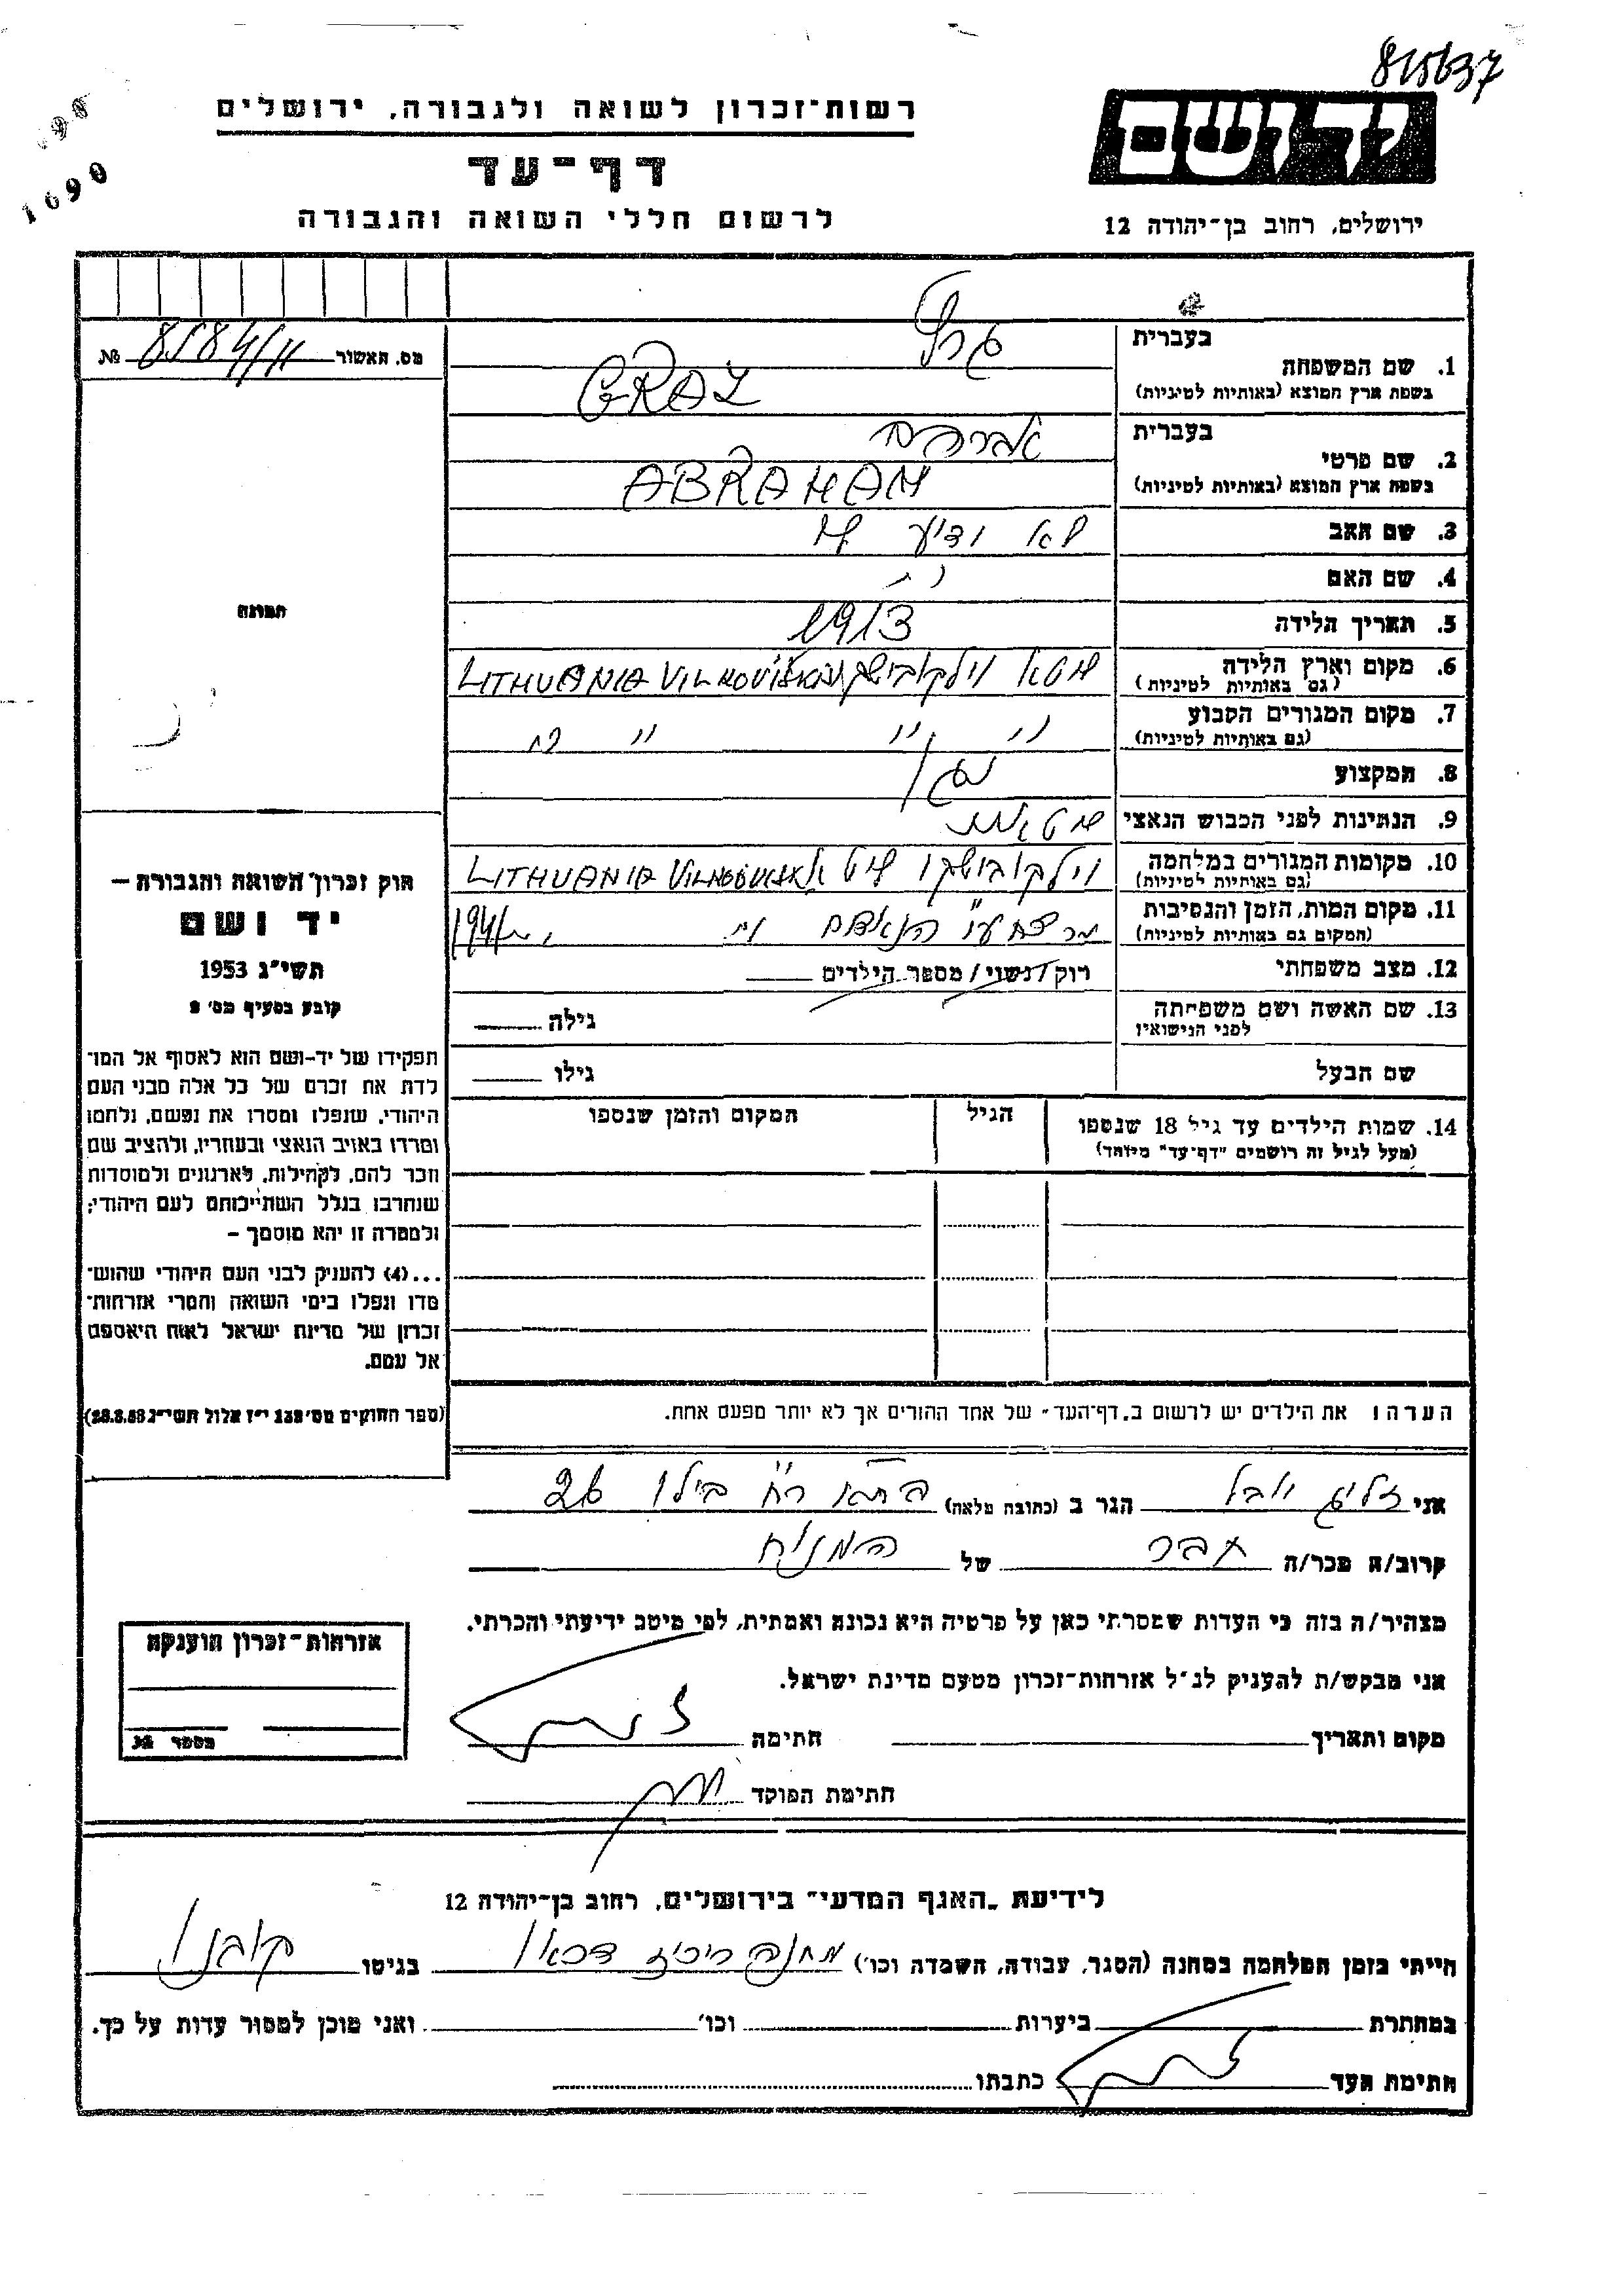 815637
רשות־זכרון לשואה ולגבורה, ירושלים
1690
דף־עד
לרשום חללי השואה והגבורה
יד ושם
ירושלים, רחוב בן־יהודה 12
מס. האשור 8584/11 №
1. שם המשפחה
בעברית
בשפת ארץ המוצא (באותיות לטיניות) GRAZ
2. שם פרטי
בעברית אברהם
בשפת ארץ המוצא (באותיות לטיניות) ABRAHAM
3. שם האב לא ידוע לי
4. שם האם ״
5. תאריך הלידה 1913
6. מקום וארץ הלידה ליטא
(גם באותיות לטיניות) LITHUANIA
7. מקום המגורים הקבוע ״ ״ ״
(גם באותיות לטיניות)
8. המקצוע
9. הנתינות לפני הכבוש הנאצי ליטאית
10. מקומות המגורים במלחמה
(גם באותיות לטיניות) LITHUANIA
11. מקום המות, הזמן והנסיבות נרצח ע״י הנאצים 1941
(המקום גם באותיות לטיניות)
12. מצב משפחתי רוק/נשוי/מספר הילדים
13. שם האשה ושם משפחתה
לפני הנישואין
גילה
שם הבעל גילו
14. שמות הילדים עד גיל 18 שנספו
(מעל לגיל זה רושמים "דף־עד" מיוחד)
הגיל
המקום והזמן שנספו
הערה: את הילדים יש לרשום ב„דף־העד״ של אחד ההורים אך לא יותר מפעם אחת.
תמונה
חוק זכרון השואה והגבורה —
יד ושם
תשי״ג 1953
קובע בסעיף מס׳ 2
תפקידו של יד-ושם הוא לאסוף אל המו־
לדת את זכרם של כל אלה מבני העם
היהודי, שנפלו ומסרו את נפשם, נלחמו
ומרדו באויב הנאצי ובעוזריו, ולהציב שם
וזכר להם, לקהילות, לארגונים ולמוסדות
שנחרבו בגלל השתייכותם לעם היהודי;
ולמטרה זו יהא מוסמך —
...(4) להעניק לבני העם היהודי שהוש־
מדו ונפלו בימי השואה והמרי אזרחות־
זכרון של מדינת ישראל לאות היאספם
אל עמם.
(ספר החוקים מס׳ 132 י״ז אלול תשי״ג 28.8.53)
אני זליג יובל הגר ב (כתובת מלאה) רח׳ בילו 26
קרוב/ה מכר/ה חבר של המנוח
מצהיר/ה בזה כי העדות שמסרתי כאן על פרטיה היא נכונה ואמתית, לפי מיטב ידיעתי והכרתי.
אני מבקש/ת להעניק לנ״ל אזרחות־זכרון מטעם מדינת ישראל.
מקום ותאריך חתימה
חתימת הפוקד
אזרחות־זכרון הוענקה
מספר №
לידיעת „האגף המדעי״ בירושלים, רחוב בן־יהודה 12
הייתי בזמן המלחמה במחנה (הסגר, עבודה, השמדה וכו׳) מחנה ריכוז דכאו בגיטו קובנו
במחתרת ביערות וכו׳ ואני מוכן למסור עדות על כך.
חתימת העד כתבתו